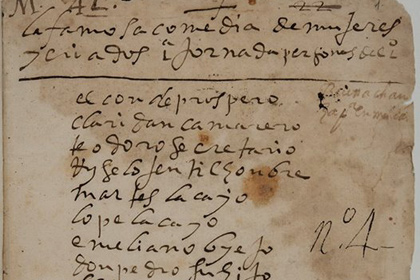 M. 42
la famosa comedia de mujeres
y criados 1ª Jornada personas del 1
el conde prospero
claridan camarero
teodoro secretario
Riselo jentilhombre
martes lacayo
lope lacayo
emiliano biejo
don pedro su hijo
nº 4